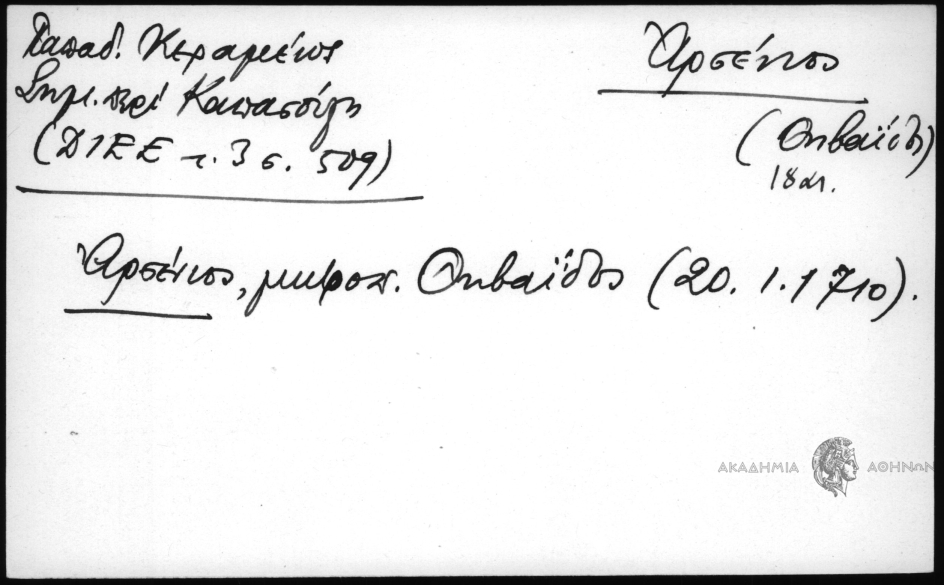 Παπαδ. Κεραμέως
Σημ. περί Καπασούλη
(ΔΙΕΕ τ. 3 σ. 509)
Ἀρσένιος
(Θηβαΐδος)
18 αι.
Ἀρσένιος, μητροπ. Θηβαΐδος (20. 1. 1710).
ΑΚΑΔΗΜΙΑ ΑΘΗΝΩΝ